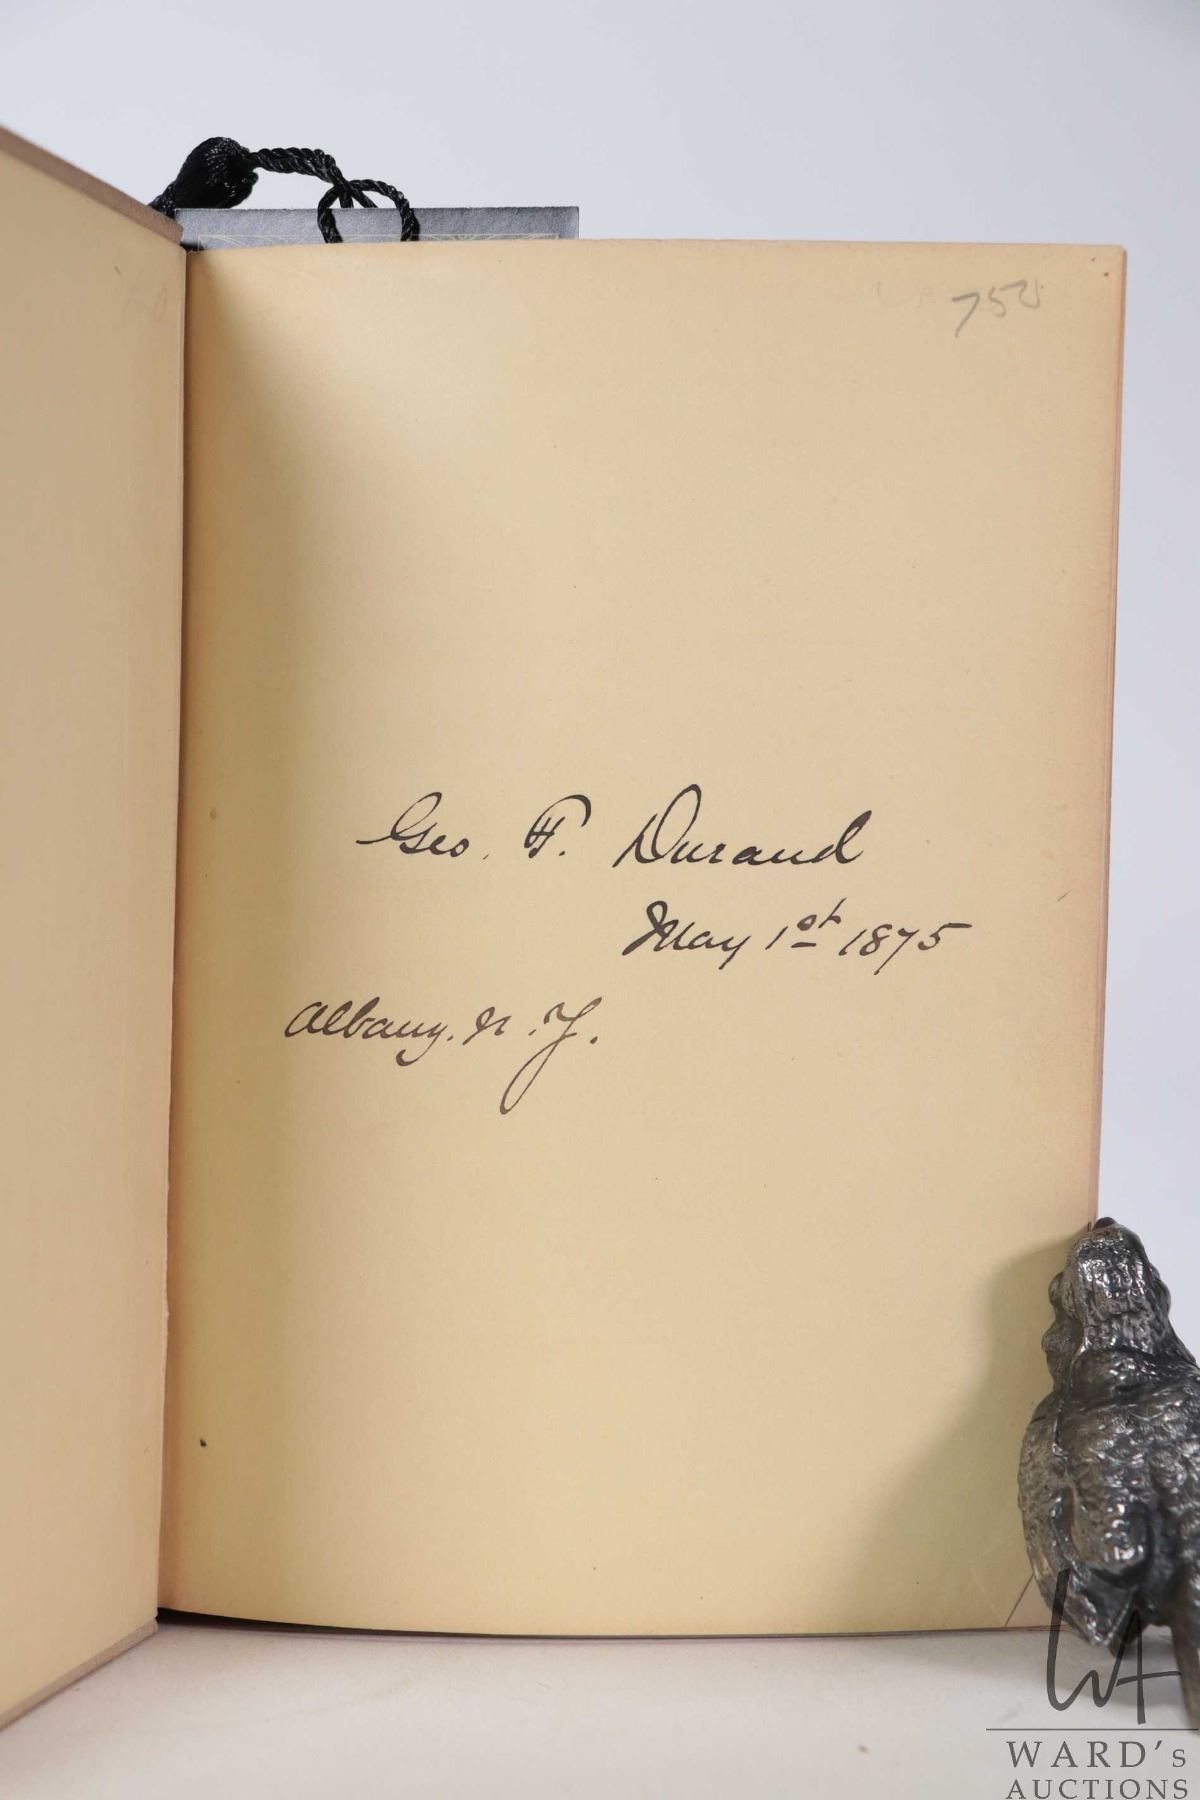 750
Geo. F. Durand
May 1st 1875
Albany. N.Y.
WARD's
AUCTIONS